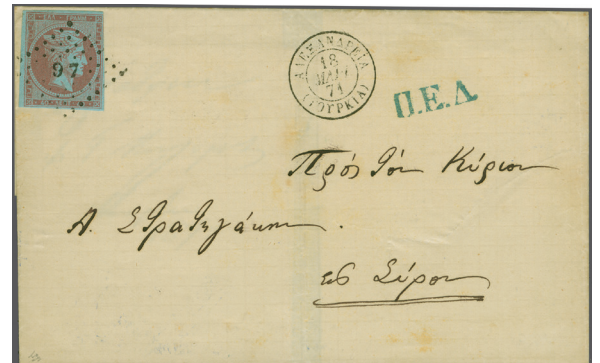 97
ΑΛΕΞΑΝΔΡΕΙΑ
18
71
(ΤΟΥΡΚΙΑ)
Π.Ε.Δ.
Πρός τόν Κύριον
Α. Στρατηγάκην.
εις Σύρον